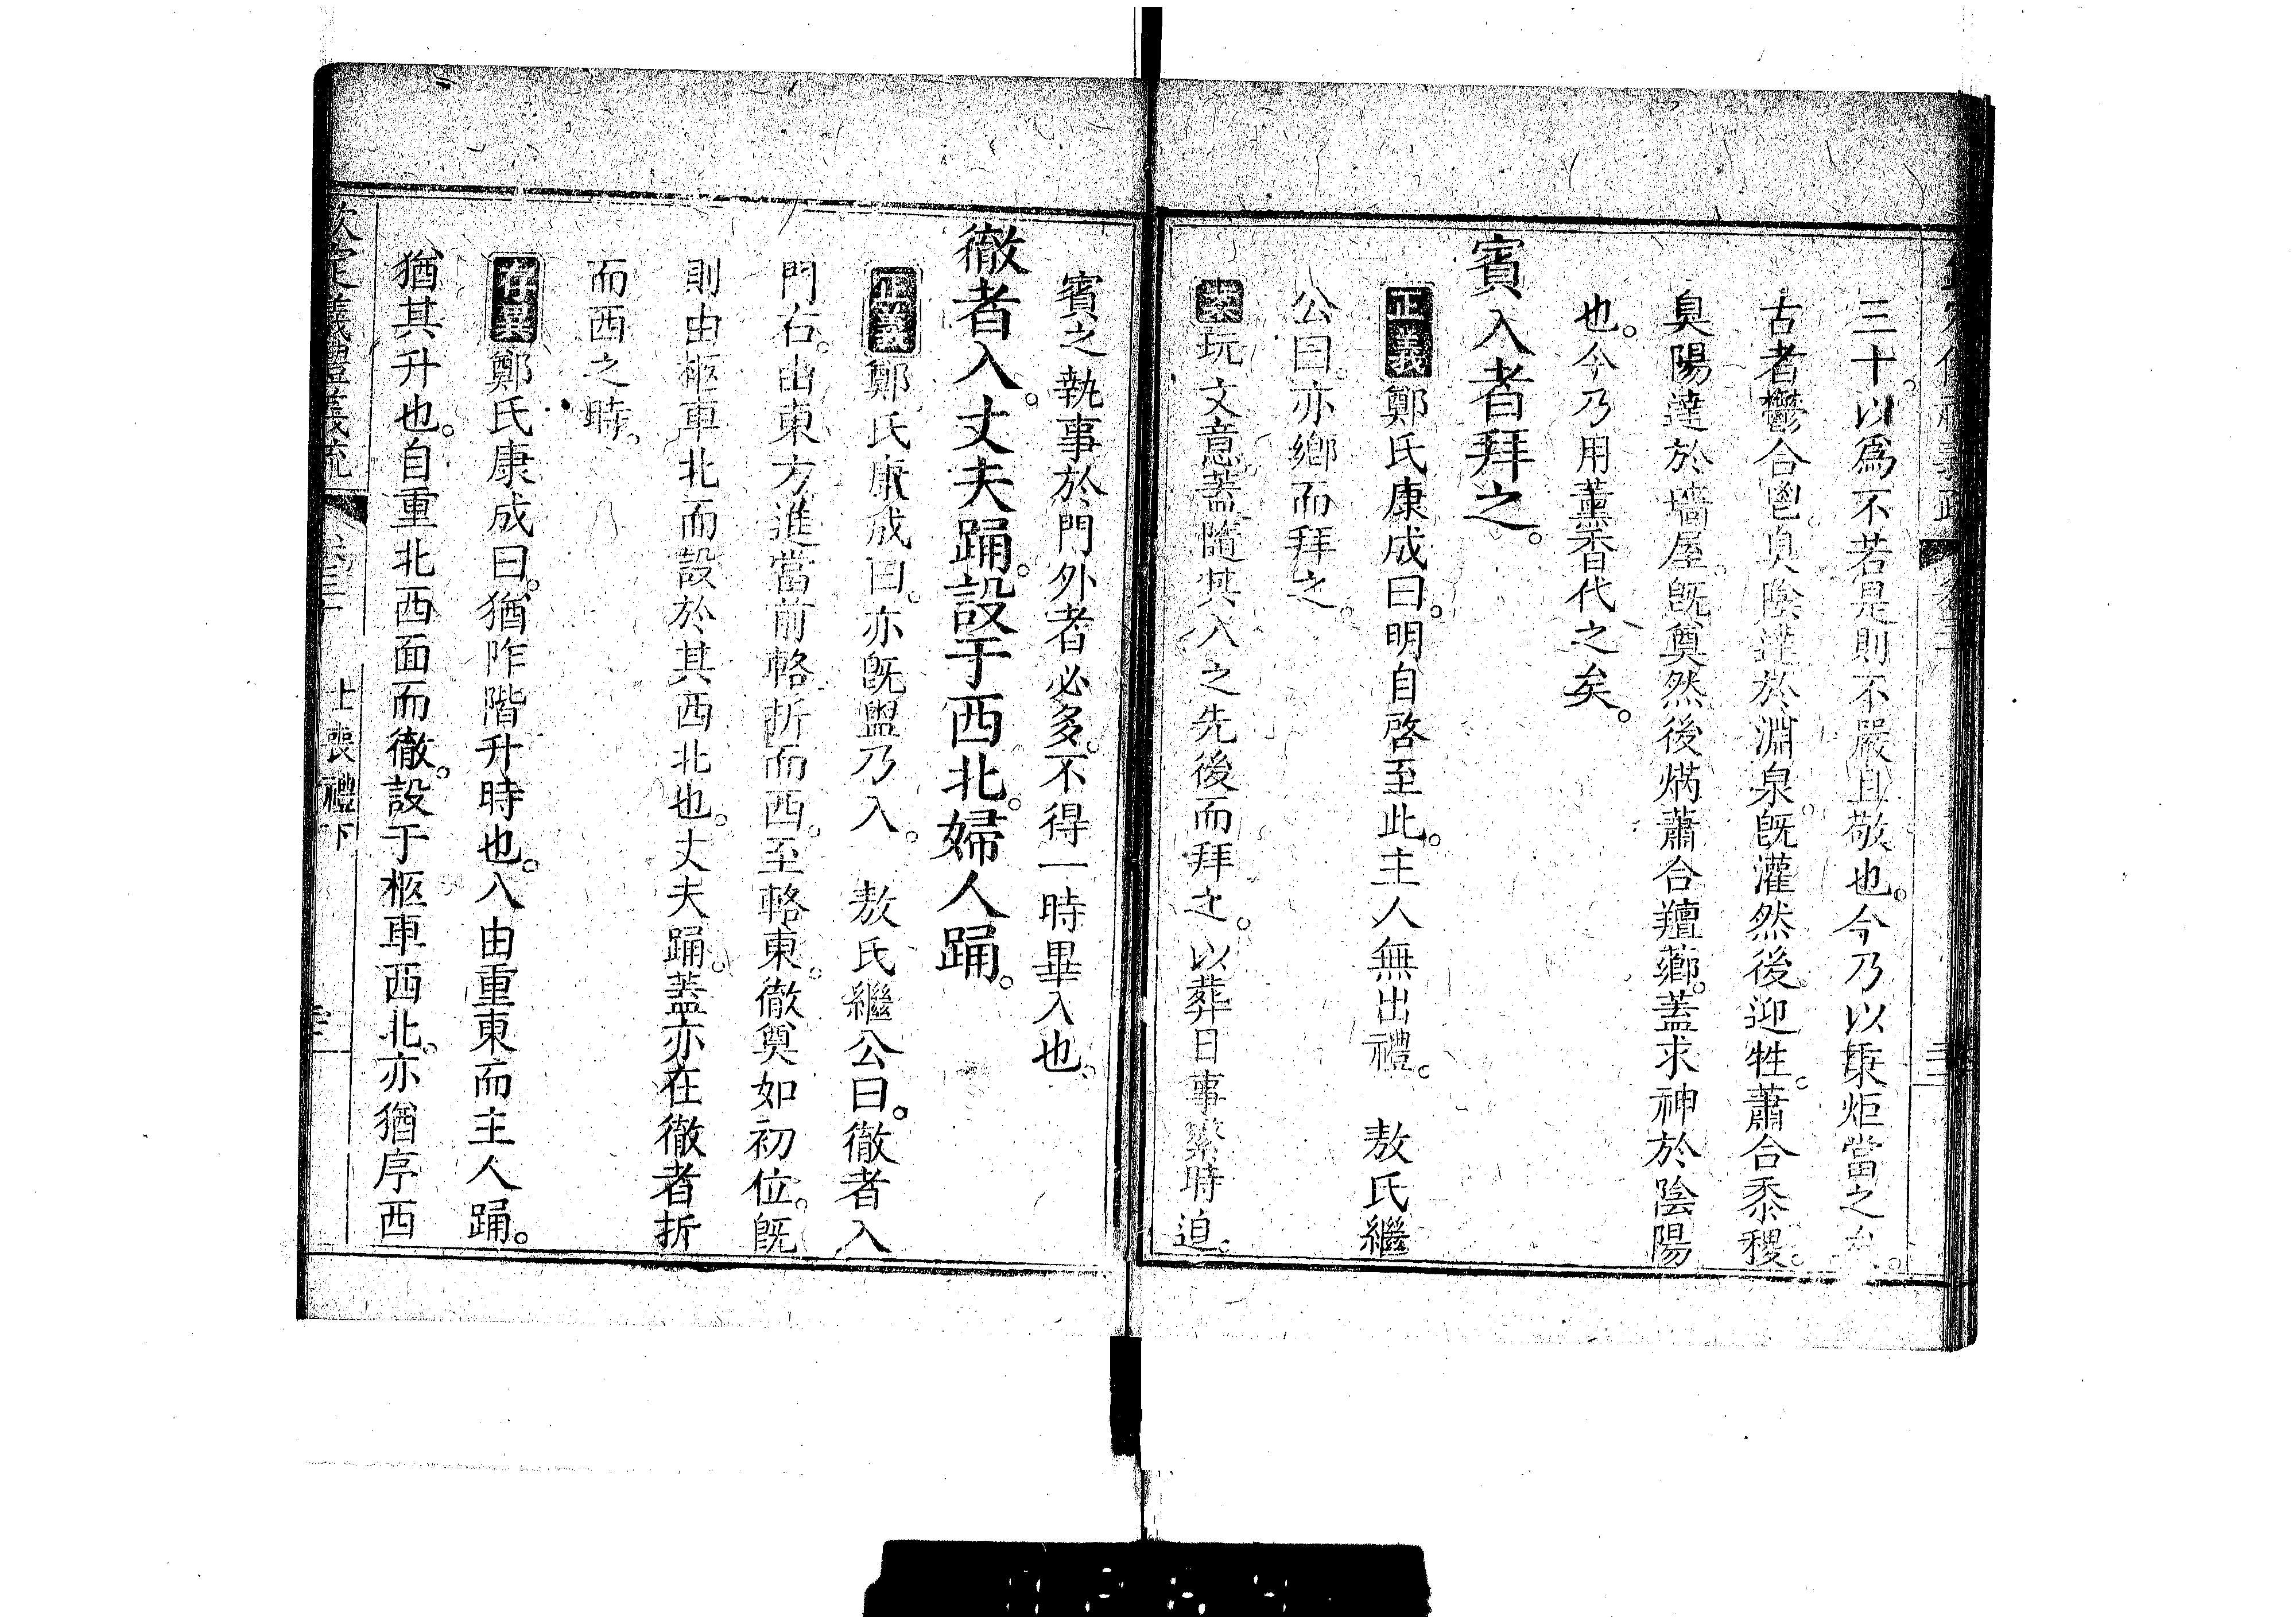 三十。以爲不若是則不嚴且敬也。今乃以蒸炬當之矣。
古者鬱合鬯。臭陰達於淵泉。旣灌然後迎牲。蕭合黍稷。
臭陽達於墻屋。旣奠然後焫蕭合羶薌。蓋求神於陰陽
也。今乃用薰香代之矣。
賓入者拜之。
正義鄭氏康成曰。明自啓至此。主人無出禮。 敖氏繼
公曰。亦鄉而拜之。
案玩文意。蓋隨其入之先後而拜之。以葬日事繁時迫。
賓之執事於門外者必多。不得一時畢入也。
徹者入。丈夫踊。設于西北。婦人踊。
正義鄭氏康成曰。亦旣盥乃入。 敖氏繼公曰。徹者入
門右。由東方進當前輅。折而西。至輅東。徹奠如初位。旣
則由柩車北而設於其西北也。丈夫踊。蓋亦在徹者折
而西之時。
存異鄭氏康成曰。猶阼階升時也。入由重東而主人踊。
猶其升也。自重北西面而徹。設于柩車西北。亦猶序西
欽定儀禮義疏 士喪禮下